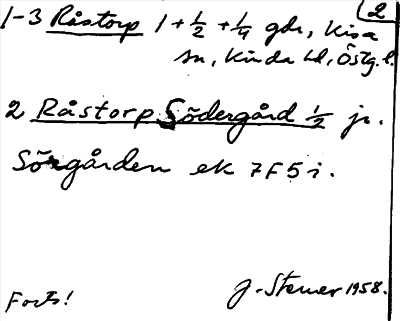 2
1-3 Råstorp 1+½+¼ gdr, Kisa
sn, Kinda hd, Östg. l.
2 Råstorp Södergård ½ jr.
Sörgården ek 7F5i.
Forts! J. Sterner 1958.